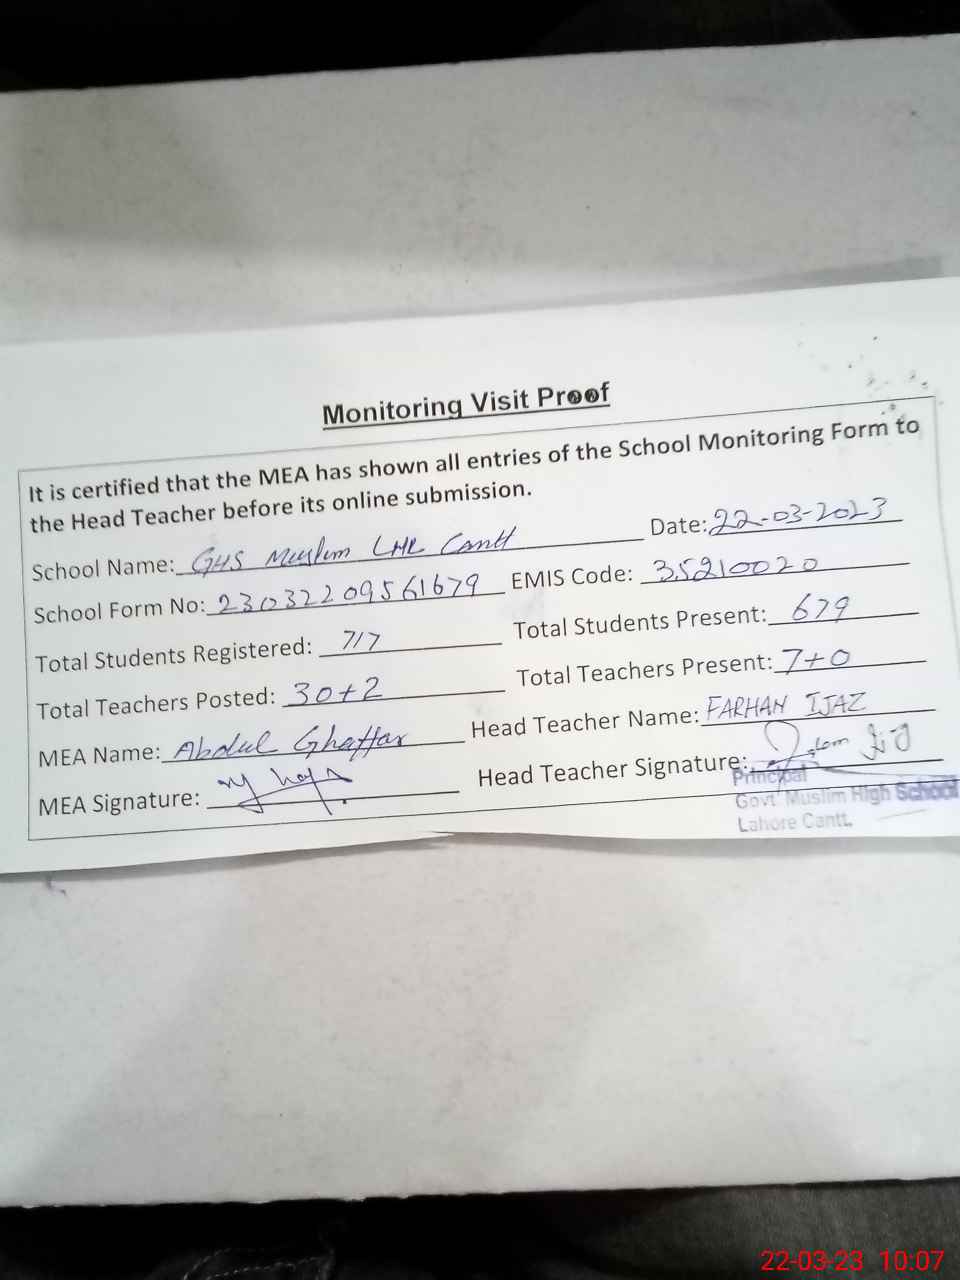 Monitoring Visit Proof
It is certified that the MEA has shown all entries of the School Monitoring Form to
the Head Teacher before its online submission.
School Name: GHS Muslim LHR Cantt Date: 22-03-2023
School Form No: 230322209561679 EMIS Code: 35210020
Total Students Registered: 717 Total Students Present: 679
Total Teachers Posted: 30+2 Total Teachers Present: 7+0
MEA Name: Abdul Ghaffar Head Teacher Name: FARHAN IJAZ
MEA Signature: Head Teacher Signature:
Principal
Govt. Muslim High School
Lahore Cantt.
22-03-23 10:07